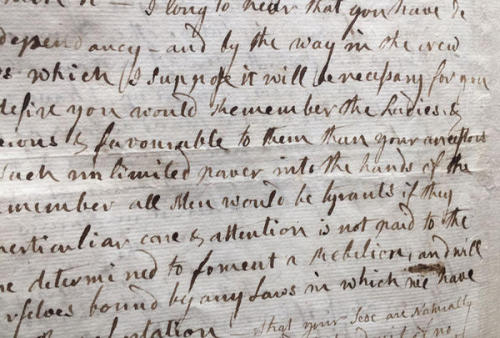 I long to hear that you have de
dependancy - and by the way in the new
which I suppose it will be necessary for you
desire you would Remember the Ladies, &
& favourable to them than your ancestors
such unlimited power into the hands of the
emember all Men would be tyrants if they
perticuliar care & attention is not paid to the
are determined to foment a Rebelion, and will
rselves bound by any Laws in which we have
That your Sex are Naturally